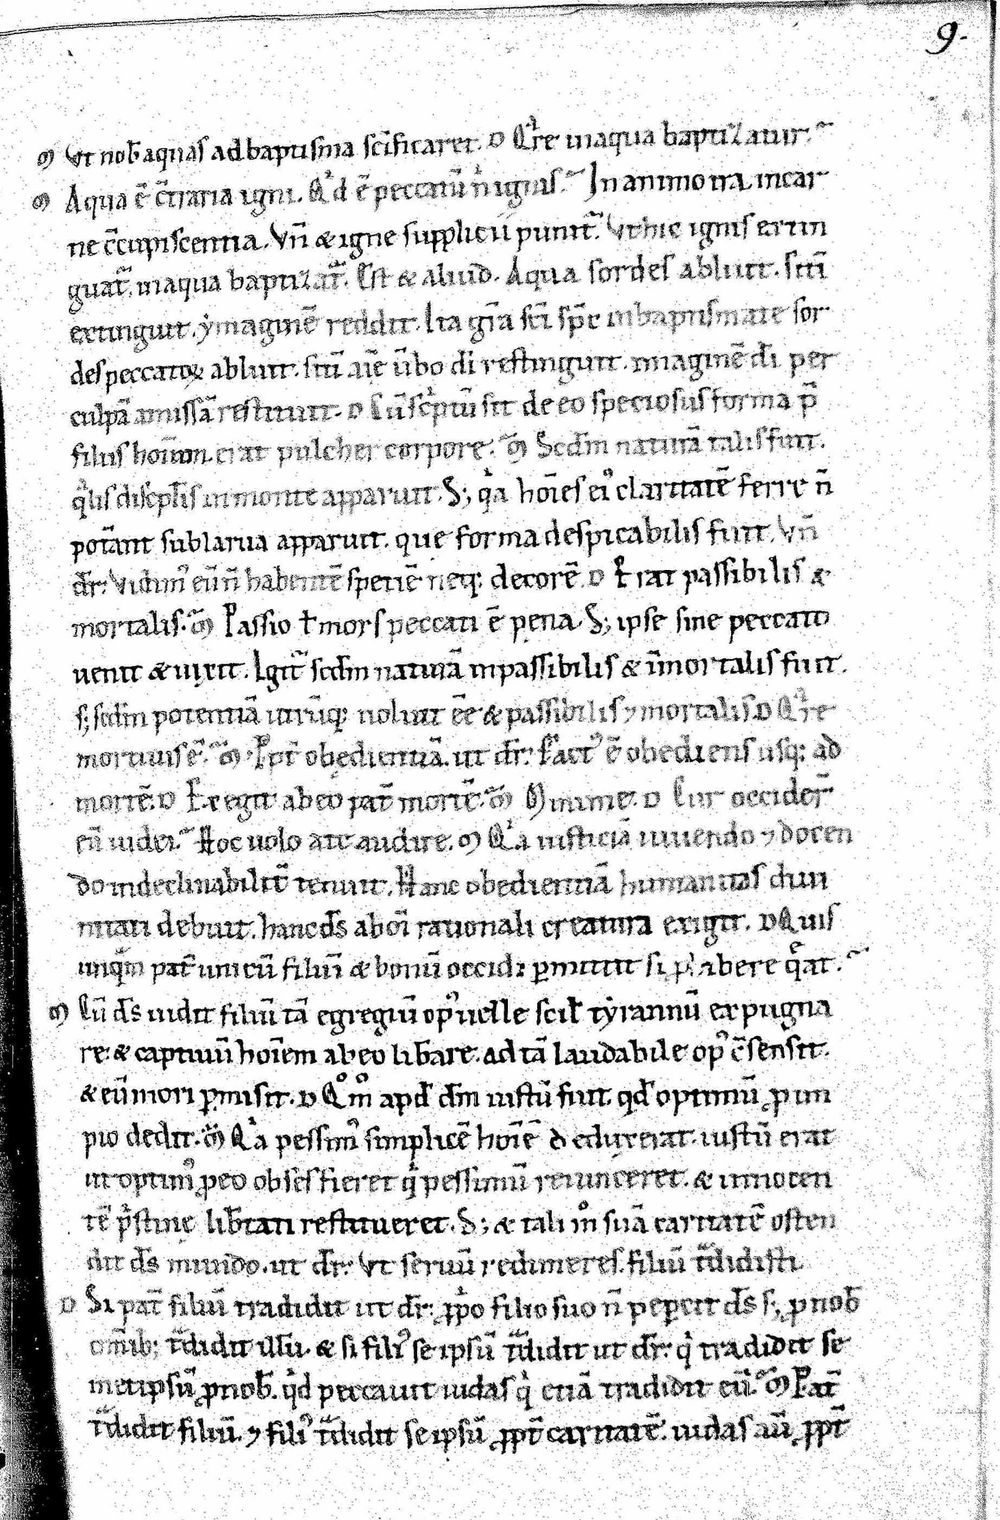 9.
ꝳ Vt nob̄ aquas ad baptisma scīficaret. D Qͬre in aqua baptizatur.
ꝳ Aqua ē cͭraria igni. Qͥd ē peccatū n̄ ignis. In animo ira. in car
ne c̄cupiscentia. Vn̄ & igne supplicii punit᷑. Vt hic ignis extin
guat᷑. in aqua baptizat᷑. Est & aliud. Aqua sordes abluit. sitī
extinguit. ẏmaginē reddit. Ita grā scī spc̄ in baptismate sor
des peccatoꝝ abluit. sitī aīe ūbo dī restinguit. imaginē dī per
culpā amissā restituit. D Cū scͥptū sit de eo speciosus forma p̄
filiis hoīum. erat pulcher corpore. ꝳ Scdm̄ naturā talis fuit.
qͣlis discipl̄is in monte apparuit. S; qͥa hoīes eiꝰ claritatē ferre n̄
potāt sub larua apparuit. que forma despicabilis fuit. Vn̄
dr̄. Vidimꝰ eū n̄ habentē speciē neq; decorē. D Erat passibilis &
mortalis. ꝳ Passio ł mors peccati ē pena. S; ipse sine peccato
uenit & uixit. Igit᷑ scdm̄ naturā inpassibilis & īmortalis fuit.
s; scdm̄ potentiā utrūq; uoluit eē & passibilis ⁊ mortalis. D Qͬre
mortuus ē. ꝳ Ppt̄ obedientiā. ut dr̄. Factꝰ ē obediens usq; ad
mortē. D Exegit ab eo pat̄ mortē. ꝳ Minime. D Cur occider̄
eū iudei. Hoc uolo a te audire. ꝳ Qͥa iusticiā uiuendo ⁊ docen
do indeclinabilit̄ tenuit. Hanc obedientiā humanitas diui
nitati debuit. hanc dš ab om̄i rationali creatura exigit. D Quis
unqͣm pat̄ unicū filiū & bonū occidi ꝑmittit si ꝓhibere qͣat.
ꝳ Cū dš uidit filiū tā egregiū opꝰ uelle scil̄ tẏrannū expugna
re. & captiuū hoīem ab eo lib̄are. ad tā laudabile opꝰ c̄sensit.
& eū mori ꝑmisit. D Qͦ mͦ apd̄ dm̄ iustū fuit. qd̄ optimū ꝓ im
pio dedit. ꝳ Qͥa pessimꝰ simplicē hoīē deduxerat. iustū erat
ut optimꝰ ꝓ eo obses fieret qͥ pessimū reuinceret. & innocen
tē pͥstine lib̄tati restitueret. S; & tali mͦ suā caritatē osten
dit dš mundo. ut dr̄. Vt seruū redimeres. filiū tͣdidisti.
D Si pat̄ filiū tradidit ut dr̄. ꝓpͥo filio suo n̄ pepercit dš s; ꝓ nob̄
om̄ib; tͣdidit illū. & si filiꝰ se ipsū tͣdidit ut dr̄. qͥ tradidit se
met ipsū ꝓ nob̄. qͥd peccauit iudas qͥ etiā tradidit eū. ꝳ Pat̄
tͣdidit filiū. ⁊ filiꝰ tͣdidit se ipsū ꝓpt̄ caritatē. iudas aū ꝓpt̄